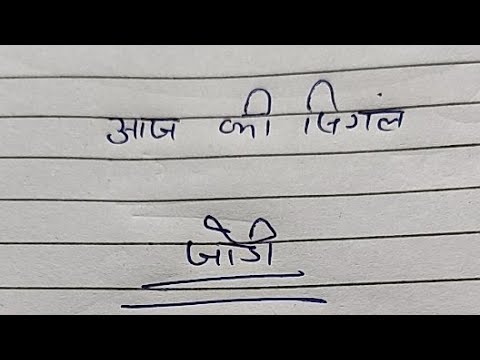 आज की सिगलं
जोडी